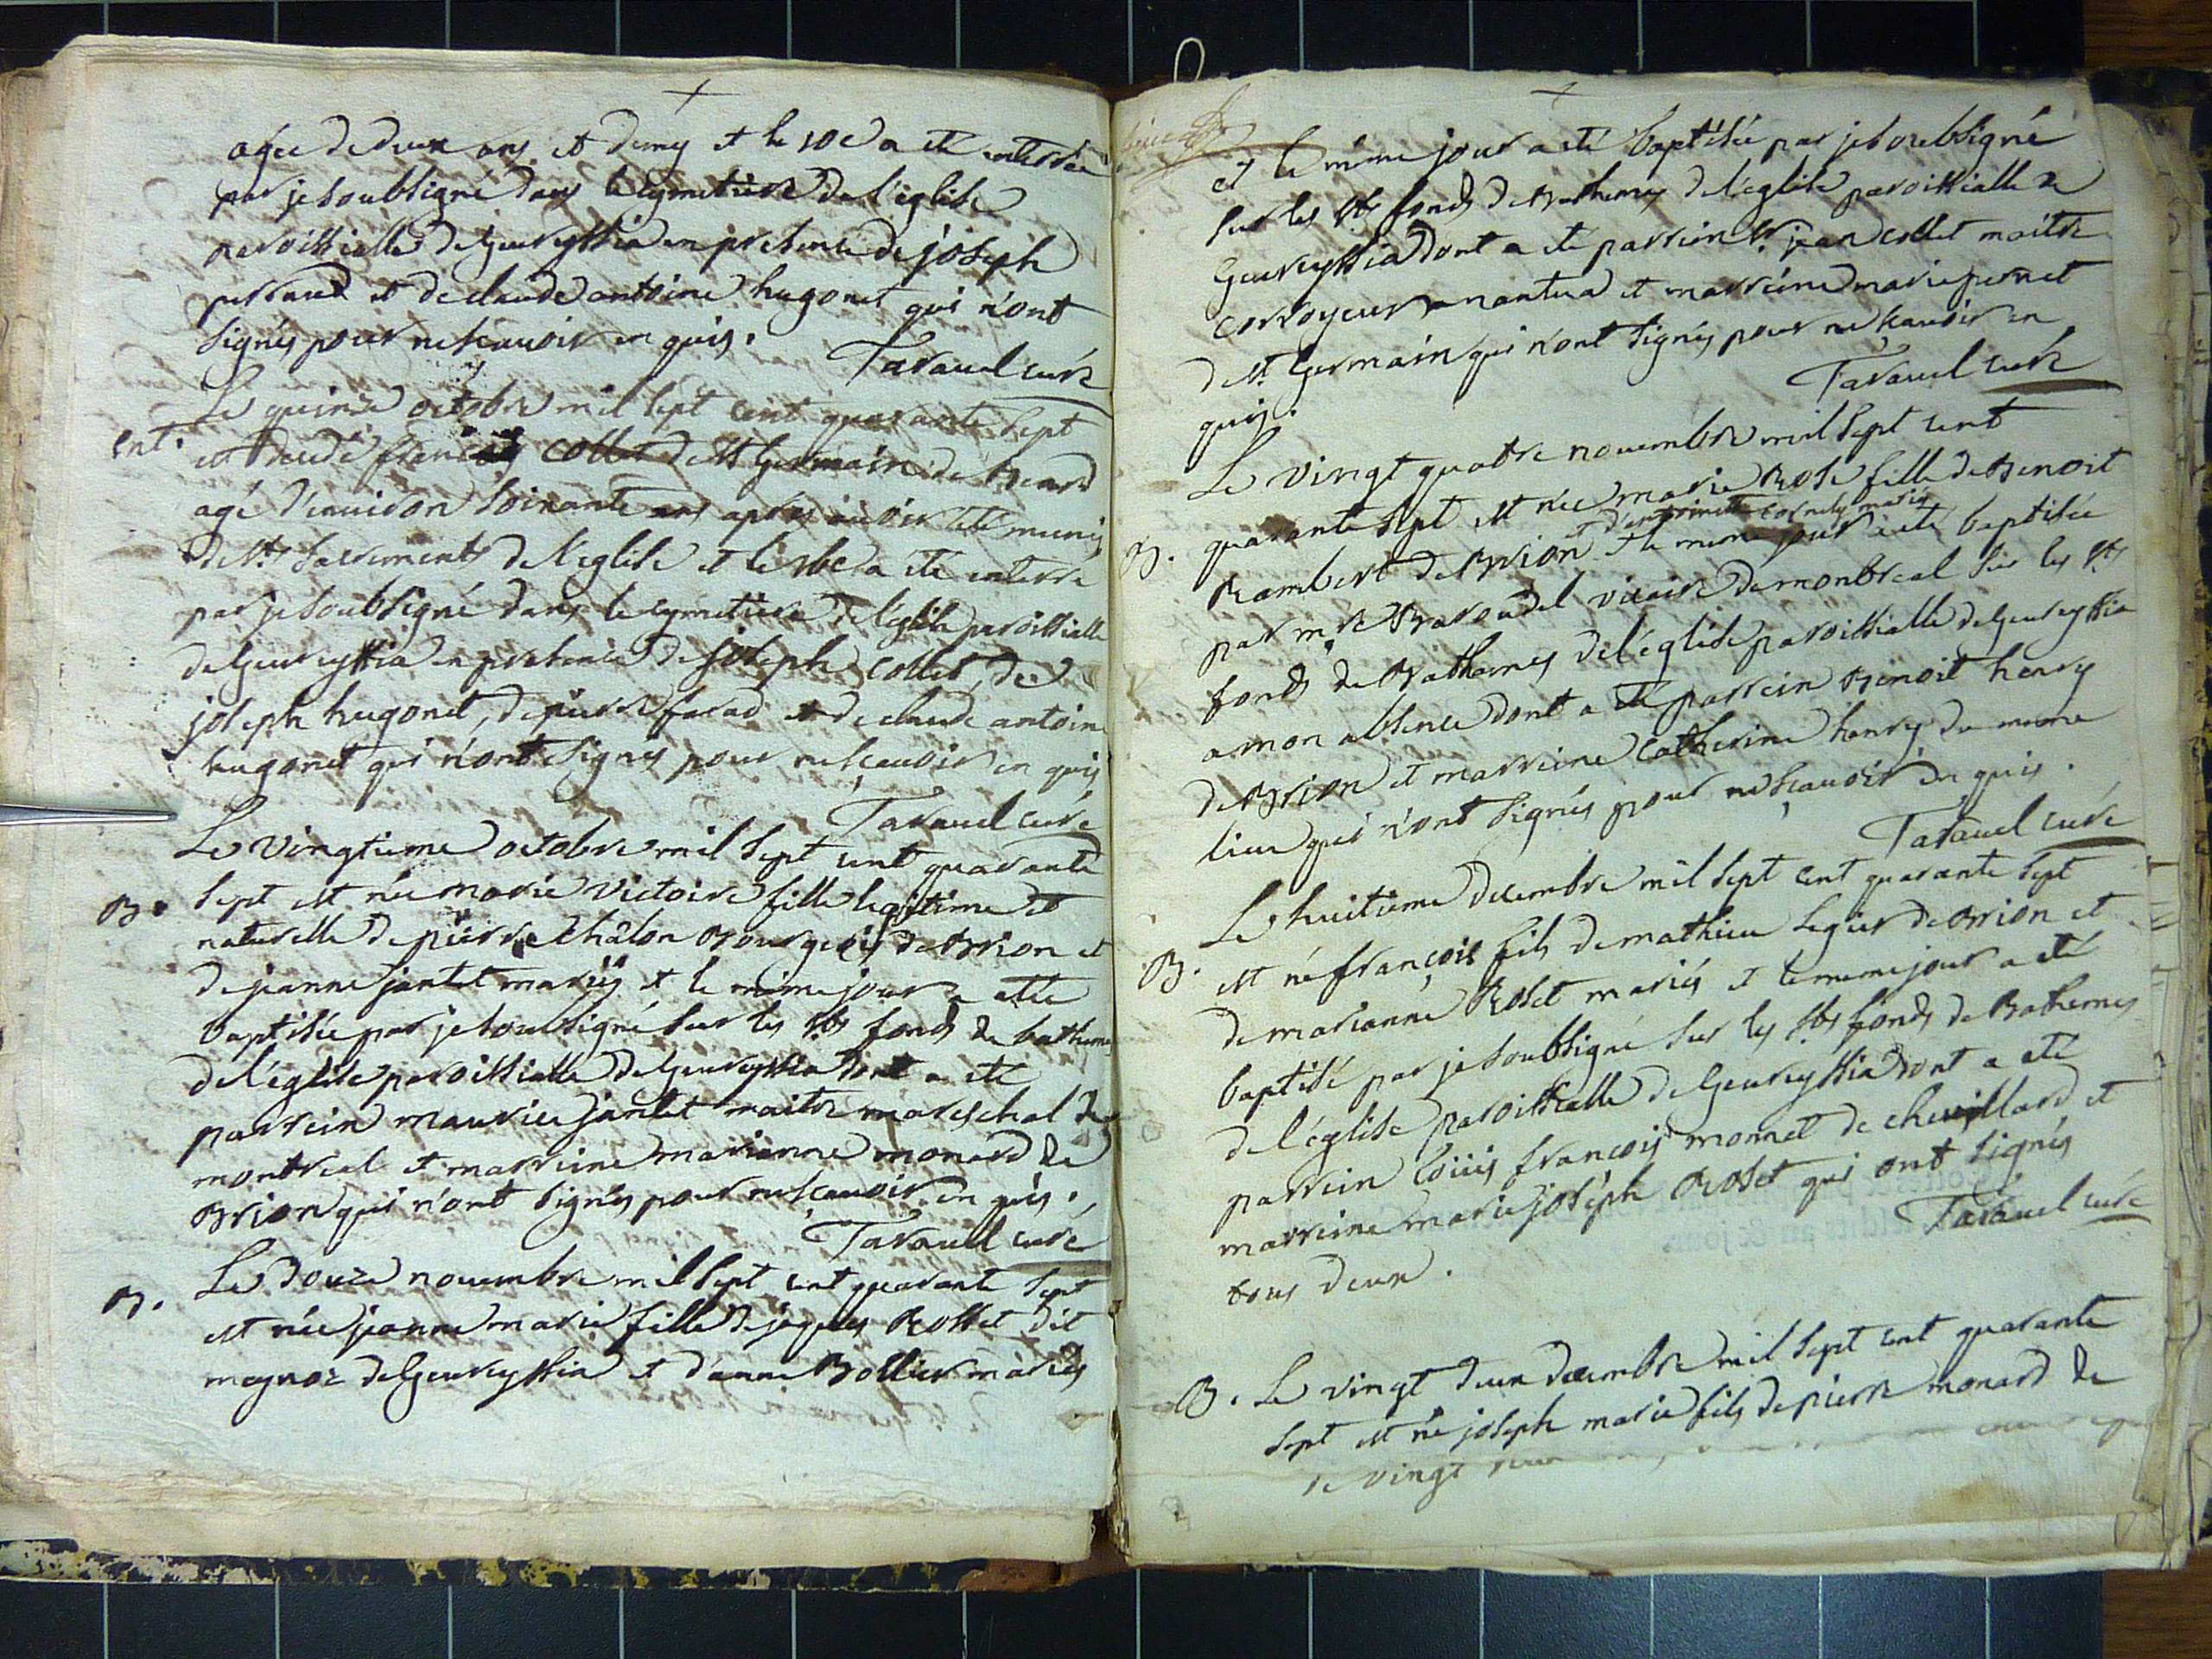 agée de deux ans et demy et le 10e a été enterrée
par je soubsigné dans le cymetière de l'eglise
paroissialle de geureyssia en presence de joseph
perraud et de claude antoine hugonet qui n'ont
signés pour ne scauoir en quis.
Tarauel curé
Le quinze octobre mil sept cent quarante sept
Ent. est decedé francois Collet de St germain de Beard
agé d'enuiron soixante ans apres auoir été munis
de Sts sacrements de l'eglise et le 16e a été enterré
par je soubsigné dans le cymetiere de l'église paroissialle
de geureyssia en presence de joseph Collet, de
joseph hugonet, de pierre farad et de claude antoine
hugonet qui n'ont signés pour ne scauoir en quis
Tarauel curé
Le vingtieme octobre mil sept cent quarante
B. sept est née marie victoire fille legitime et
naturelle de pierre châlon Bourgeois de Brion et
de jeanne jantet mariés et le même jour a etée
baptisée par je soussigné sur les Sts fonds de bathemes
de l'église paroissialle de geureyssia dont a eté
parrein maurice jantet maitre mareschal de
montreal et marreine marianne monard de
Brion qui n'ont signés pour ne scauoir en quis.
Tarauel curé
B. Le douze nouembre mil sept cent quarante sept
est née jeanne marie fille de jaques Rosset dit
magnoz de geureyssia et d'anne Bollier mariés
et le même jour a eté baptisée par je soubsigné
sur les Sts fonds de Bathemes de l'église paroissialle de
geureyssia dont a eté parrein Sr jean collet maitre
corroyeur a nantua et marreine marie pernet
de St germain qui n'ont signés pour ne scauoir en
quis.
Tarauel curé
Le vingt quatre nouembre mil sept cent
B. quarante sept est née marie Rose fille de Benoit
Rambert de Brion et d'antoinette mariés et le meme jour a eté baptisée
par mre Barondel vicaire de monbreal sur les Sts
fonds de Bathemes de l'église paroissialle de geureyssia
a mon absence dont a été parrein Benoit henry
de Brion et marreine Catherine henry du meme
lieu qui n'ont signés pour ne scauoir en quis.
Tarauel curé
Le huitieme decembre mil sept cent quarante sept
B. est né françois fils de mathieu Legier de Brion et
de marianne Roset mariés et le meme jour a eté
baptisé par je soubsigné sur les Sts fonds de Bathemes
de l'église paroissialle de geureyssia dont a eté
parrein Loüis françois monnet de cheuillard et
marreine marie joséph Roset qui ont signés
tous deux.
Tarauel curé
B. Le vingt deux decembre mil sept cent quarante
sept est né joseph marie fils de pierre monard de
le vingt